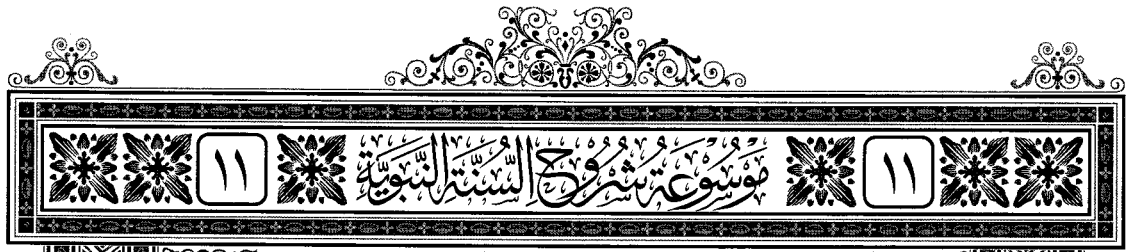 ١١ مَوْسُوعَةُ شُرُوحِ السُّنَّةِ النَّبَوِيَّةِ ١١